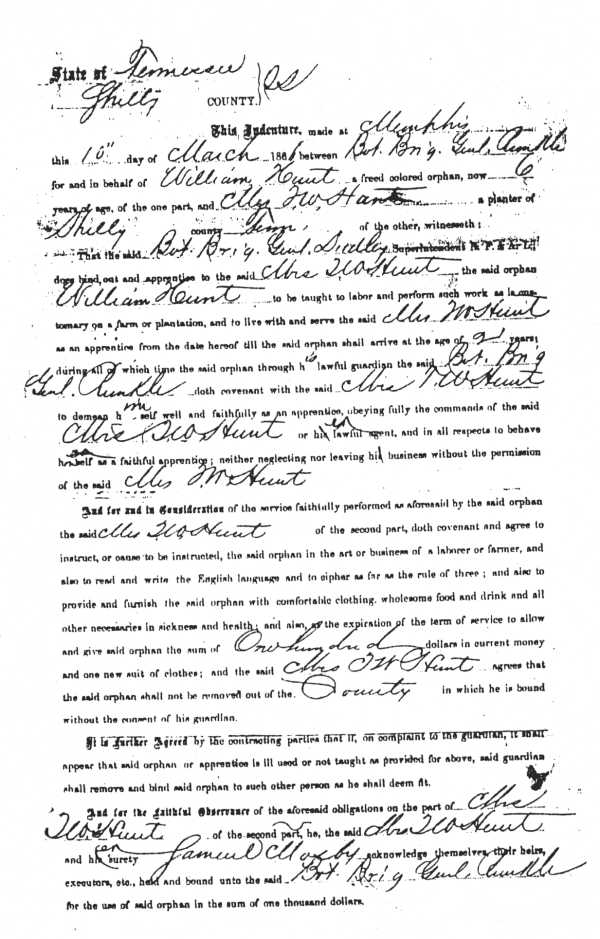 State of Tennessee
Shelby COUNTY. } SS
This Indenture, made at Memphis
this 10" day of March 1866 between Bvt. Brig. Genl. Runkle
for and in behalf of William Hunt a freed colored orphan, now 6
years of age, of the one part, and Mrs T. W. Hunt a planter of
Shelby county Tenn. of the other, witnesseth:
That the said Bvt. Brig. Genl. Dudley Superintendent R. F. & A. L.
does bind out and apprentice to the said Mrs T W Hunt the said orphan
William Hunt to be taught to labor and perform such work as is cus-
tomary on a farm or plantation, and to live with and serve the said Mrs T W Hunt
as an apprentice from the date hereof till the said orphan shall arrive at the age of years;
during all of which time the said orphan through his lawful guardian the said Bvt. Brig
Genl. Runkle doth covenant with the said Mrs T W Hunt
to demean himself well and faithfully as an apprentice, obeying fully the commands of the said
Mrs T W Hunt or her lawful agent, and in all respects to behave
himself as a faithful apprentice; neither neglecting nor leaving his business without the permission
of the said Mrs T W Hunt
And for and in Consideration of the service faithfully performed as aforesaid by the said orphan
the said Mrs T W Hunt of the second part, doth covenant and agree to
instruct, or cause to be instructed, the said orphan in the art or business of a laborer or farmer, and
also to read and write the English language and to cipher as far as the rule of three; and also to
provide and furnish the said orphan with comfortable clothing. wholesome food and drink and all
other necessaries in sickness and health; and also, at the expiration of the term of service to allow
and give said orphan the sum of One hundred dollars in current money
and one new suit of clothes; and the said Mrs T W Hunt agrees that
the said orphan shall not be removed out of the County in which he is bound
without the consent of his guardian.
It is further Agreed by the contracting parties that if, on complaint to the guardian, it shall
appear that said orphan or apprentice is ill used or not taught as provided for above, said guardian
shall remove and bind said orphan to such other person as he shall deem fit.
And for the faithful Observance of the aforesaid obligations on the part of Mrs
T W Hunt of the second part, he, the said Mrs T W Hunt
and her surety Samuel Mosby acknowledge themselves, their heirs,
executors, etc., held and bound unto the said Bvt. Brig Genl. Runkle
for the use of said orphan in the sum of one thousand dollars.